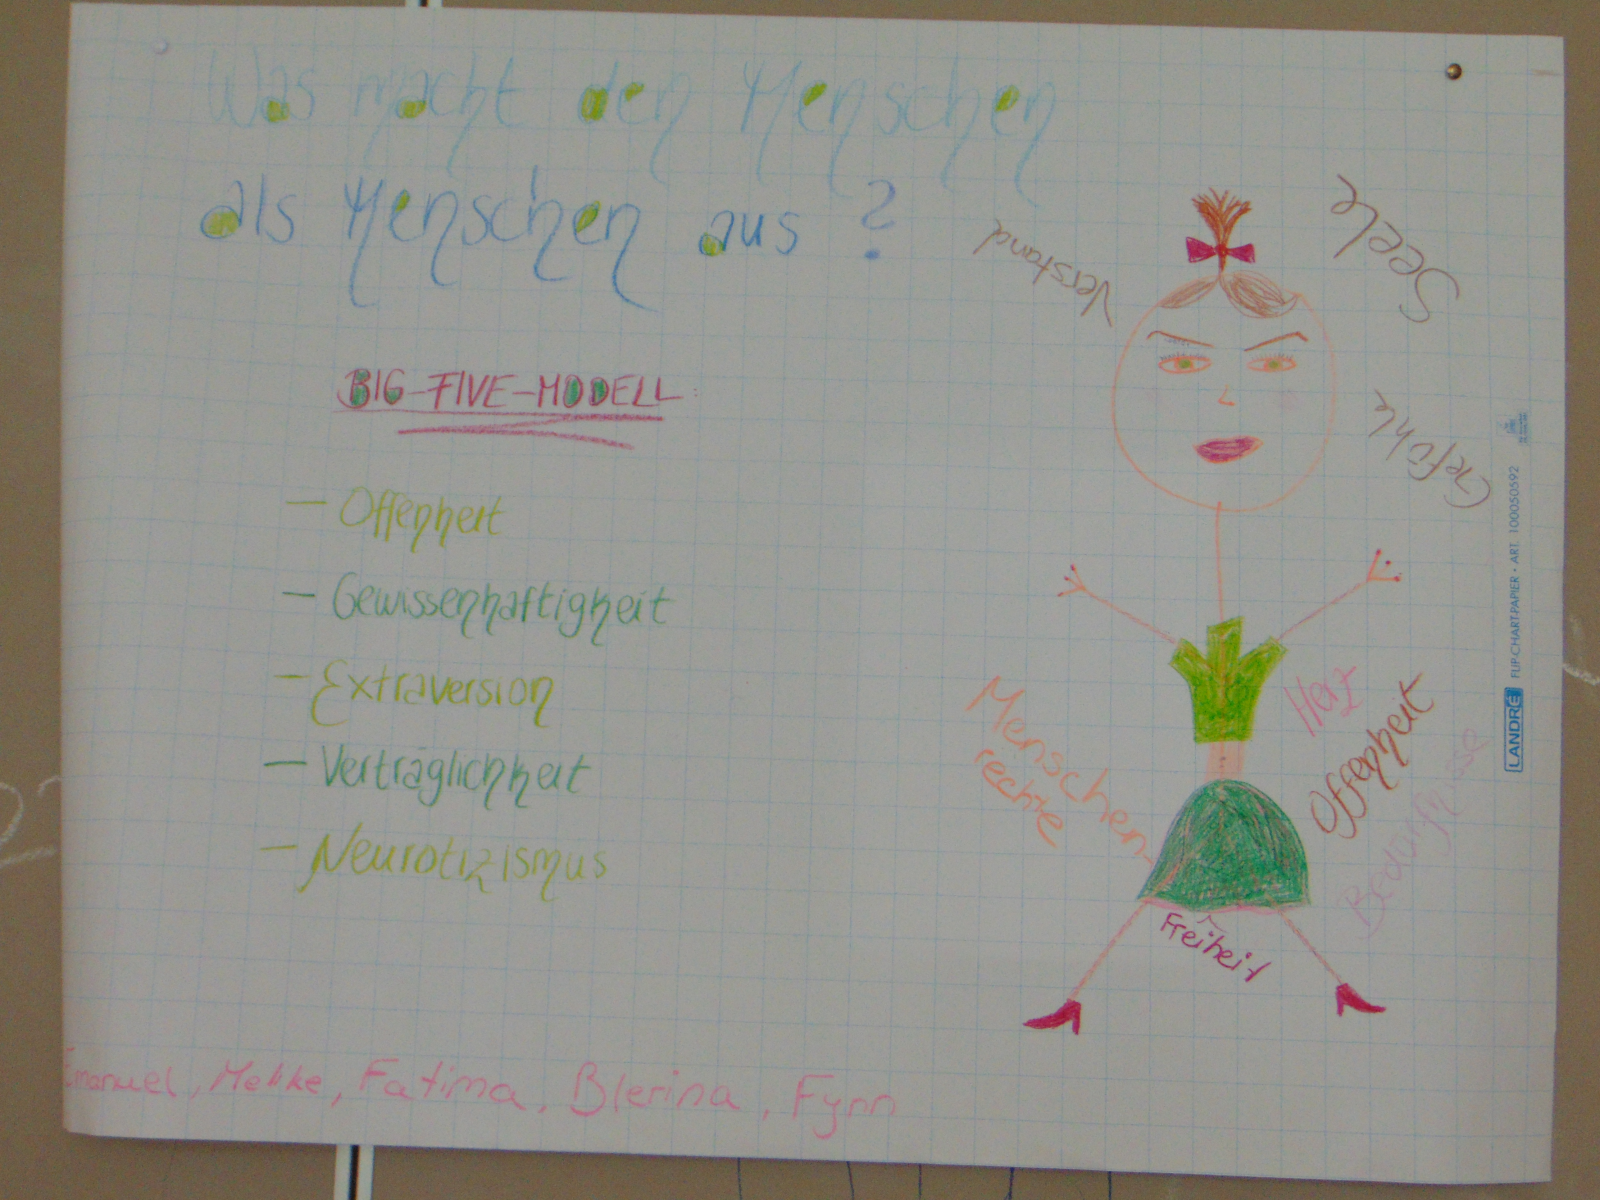 Was macht den Menschen
als Menschen aus ?
BIG-FIVE-MODELL:
– Offenheit
– Gewissenhaftigkeit
– Extraversion
– Verträglichkeit
– Neurotizismus
Verstand
Seele
Gefühle
Menschen-
rechte
Herz
Offenheit
Bedürfnisse
Freiheit
Emanuel, Melike, Fatima, Blerina, Fynn
LANDRÉ FLIP-CHART-PAPIER • ART. 100050592